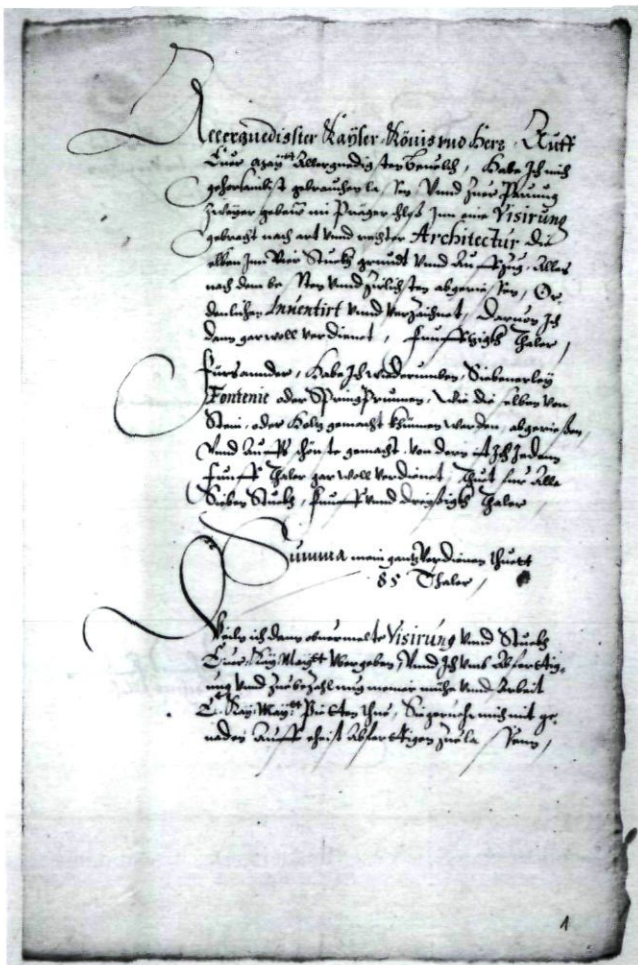 Allergnedigster Kayser König vnd Herr, Auff
Eur May:tt Allergnedigsten beuelch, Habe Ich mich
gehorsamlist gebrauchen lassen, Vnnd zuer Pauung
zweyer gebew im Prager schloß Inn eine Visirung
gebracht nach art vnnd rechter Architectur die
selben Inn Vier Stuckh grundt vnnd Auffzug, Alles
nach dem besten vnnd abgerissen, Or
denlichen Inuentirt vnnd verzaichnet, Daruon Ich
dann gar woll verdient, funffzigkh Thaler,
fürs annder, Habe Ich wiederumben, Siebenerley
Fontenie oder SpringPrunnen, wie die selben von
Stein, oder Holtz gemacht khünnen werden, abgerissen
Vnnd Auffs schönste gemacht. von dern ist Ich Jedem
funff Thaler gar woll verdienet, thut für Alle
Sieben Stuckh, funff vnnd dreissigkh Thaler,
Summa mein gantz Verdienen thuett
85 Thaler,
Weiln ich dann obuermelte Visirung vnnd Stuckh
Eur Kay: May:tt vbergeben, Vnnd Ich vmb Abferttig-
ung vnnd zuebezahlung meiner mühe vnnd Arbeit
E: Kay: May:tt Pitten thue, Sie geruehe mich mit ge-
naden Auffs eheist Abferttigen zue lassenn,
1